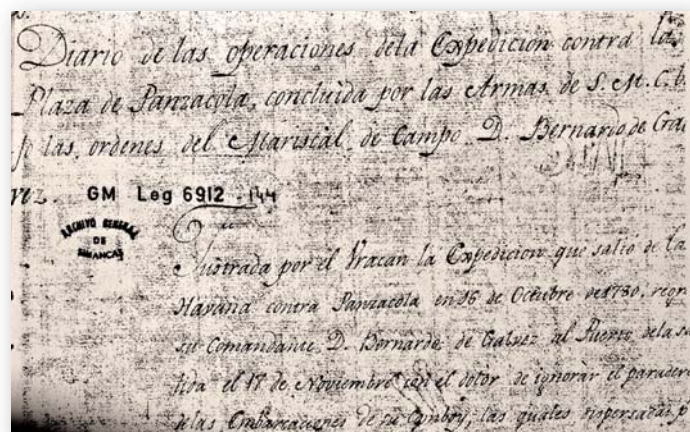 Diario de las operaciones dela Expedicion contra la
Plaza de Panzacola, concluida por las Armas de S. M. C. b
jo las ordenes del Mariscal de Campo D. Bernardo de Gal
vez.
GM Leg 6912 - 144
ARCHIVO GENERAL
DE
SIMANCAS
Frustrada por el Vracan la Expedicion que salio de la
Havana contra Panzacola en 16 de Octubre de 1780, regr
su Comandante D. Bernardo de Galvez al Puerto dela sa
lida el 17 de Noviembre con el dolor de ignorar el parader
delas Embarcaciones de su Comboy, las quales dispersadas p